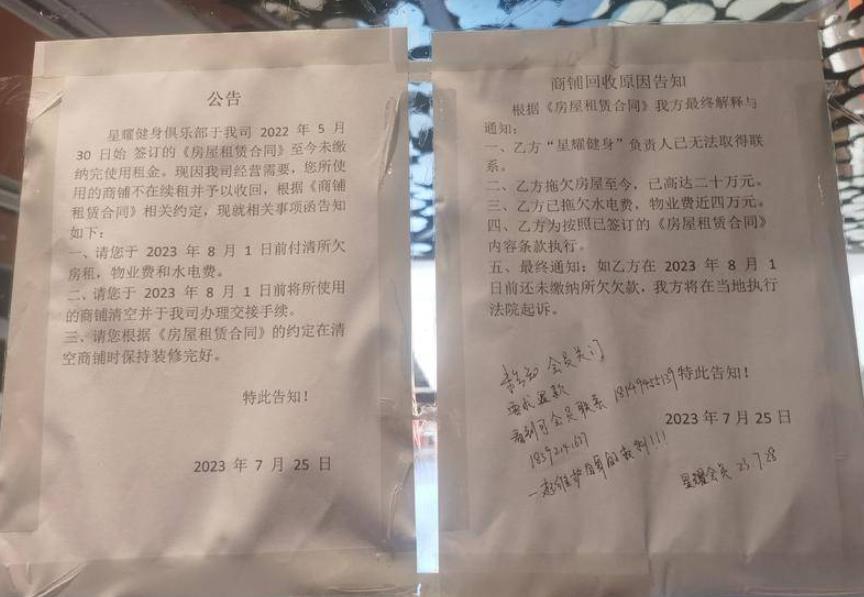 公告
星耀健身俱乐部于我司 2022 年 5 月
30 日始 签订的《房屋租赁合同》至今未缴
纳完使用租金。现因我司经营需要，您所使
用的商铺不在续租并予以收回，根据《商铺
租赁合同》相关约定，现就相关事项函告知
如下：
一、请您于 2023 年 8 月 1 日前付清所欠
房租，物业费和水电费。
二、请您于 2023 年 8 月 1 日前将所使用
的商铺清空并于我司办理交接手续。
三、请您根据《房屋租赁合同》的约定在清
空商铺时保持装修完好。
特此告知！
2023 年 7 月 25 日
商铺回收原因告知
根据《房屋租赁合同》我方最终解释与
通知：
一、乙方“星耀健身”负责人已无法取得联
系。
二、乙方拖欠房屋至今，已高达二十万元。
三、乙方已拖欠水电费，物业费近四万元。
四、乙方为按照已签订的《房屋租赁合同》
内容条款执行。
五、最终通知：如乙方在 2023 年 8 月 1
日前还未缴纳所欠欠款，我方将在当地执行
法院起诉。
特此告知！
2023 年 7 月 25 日
会员关门
要求退款
看到可会员联系 18149455139
一起维护自身的权利！！！
星耀会员 23.7.28